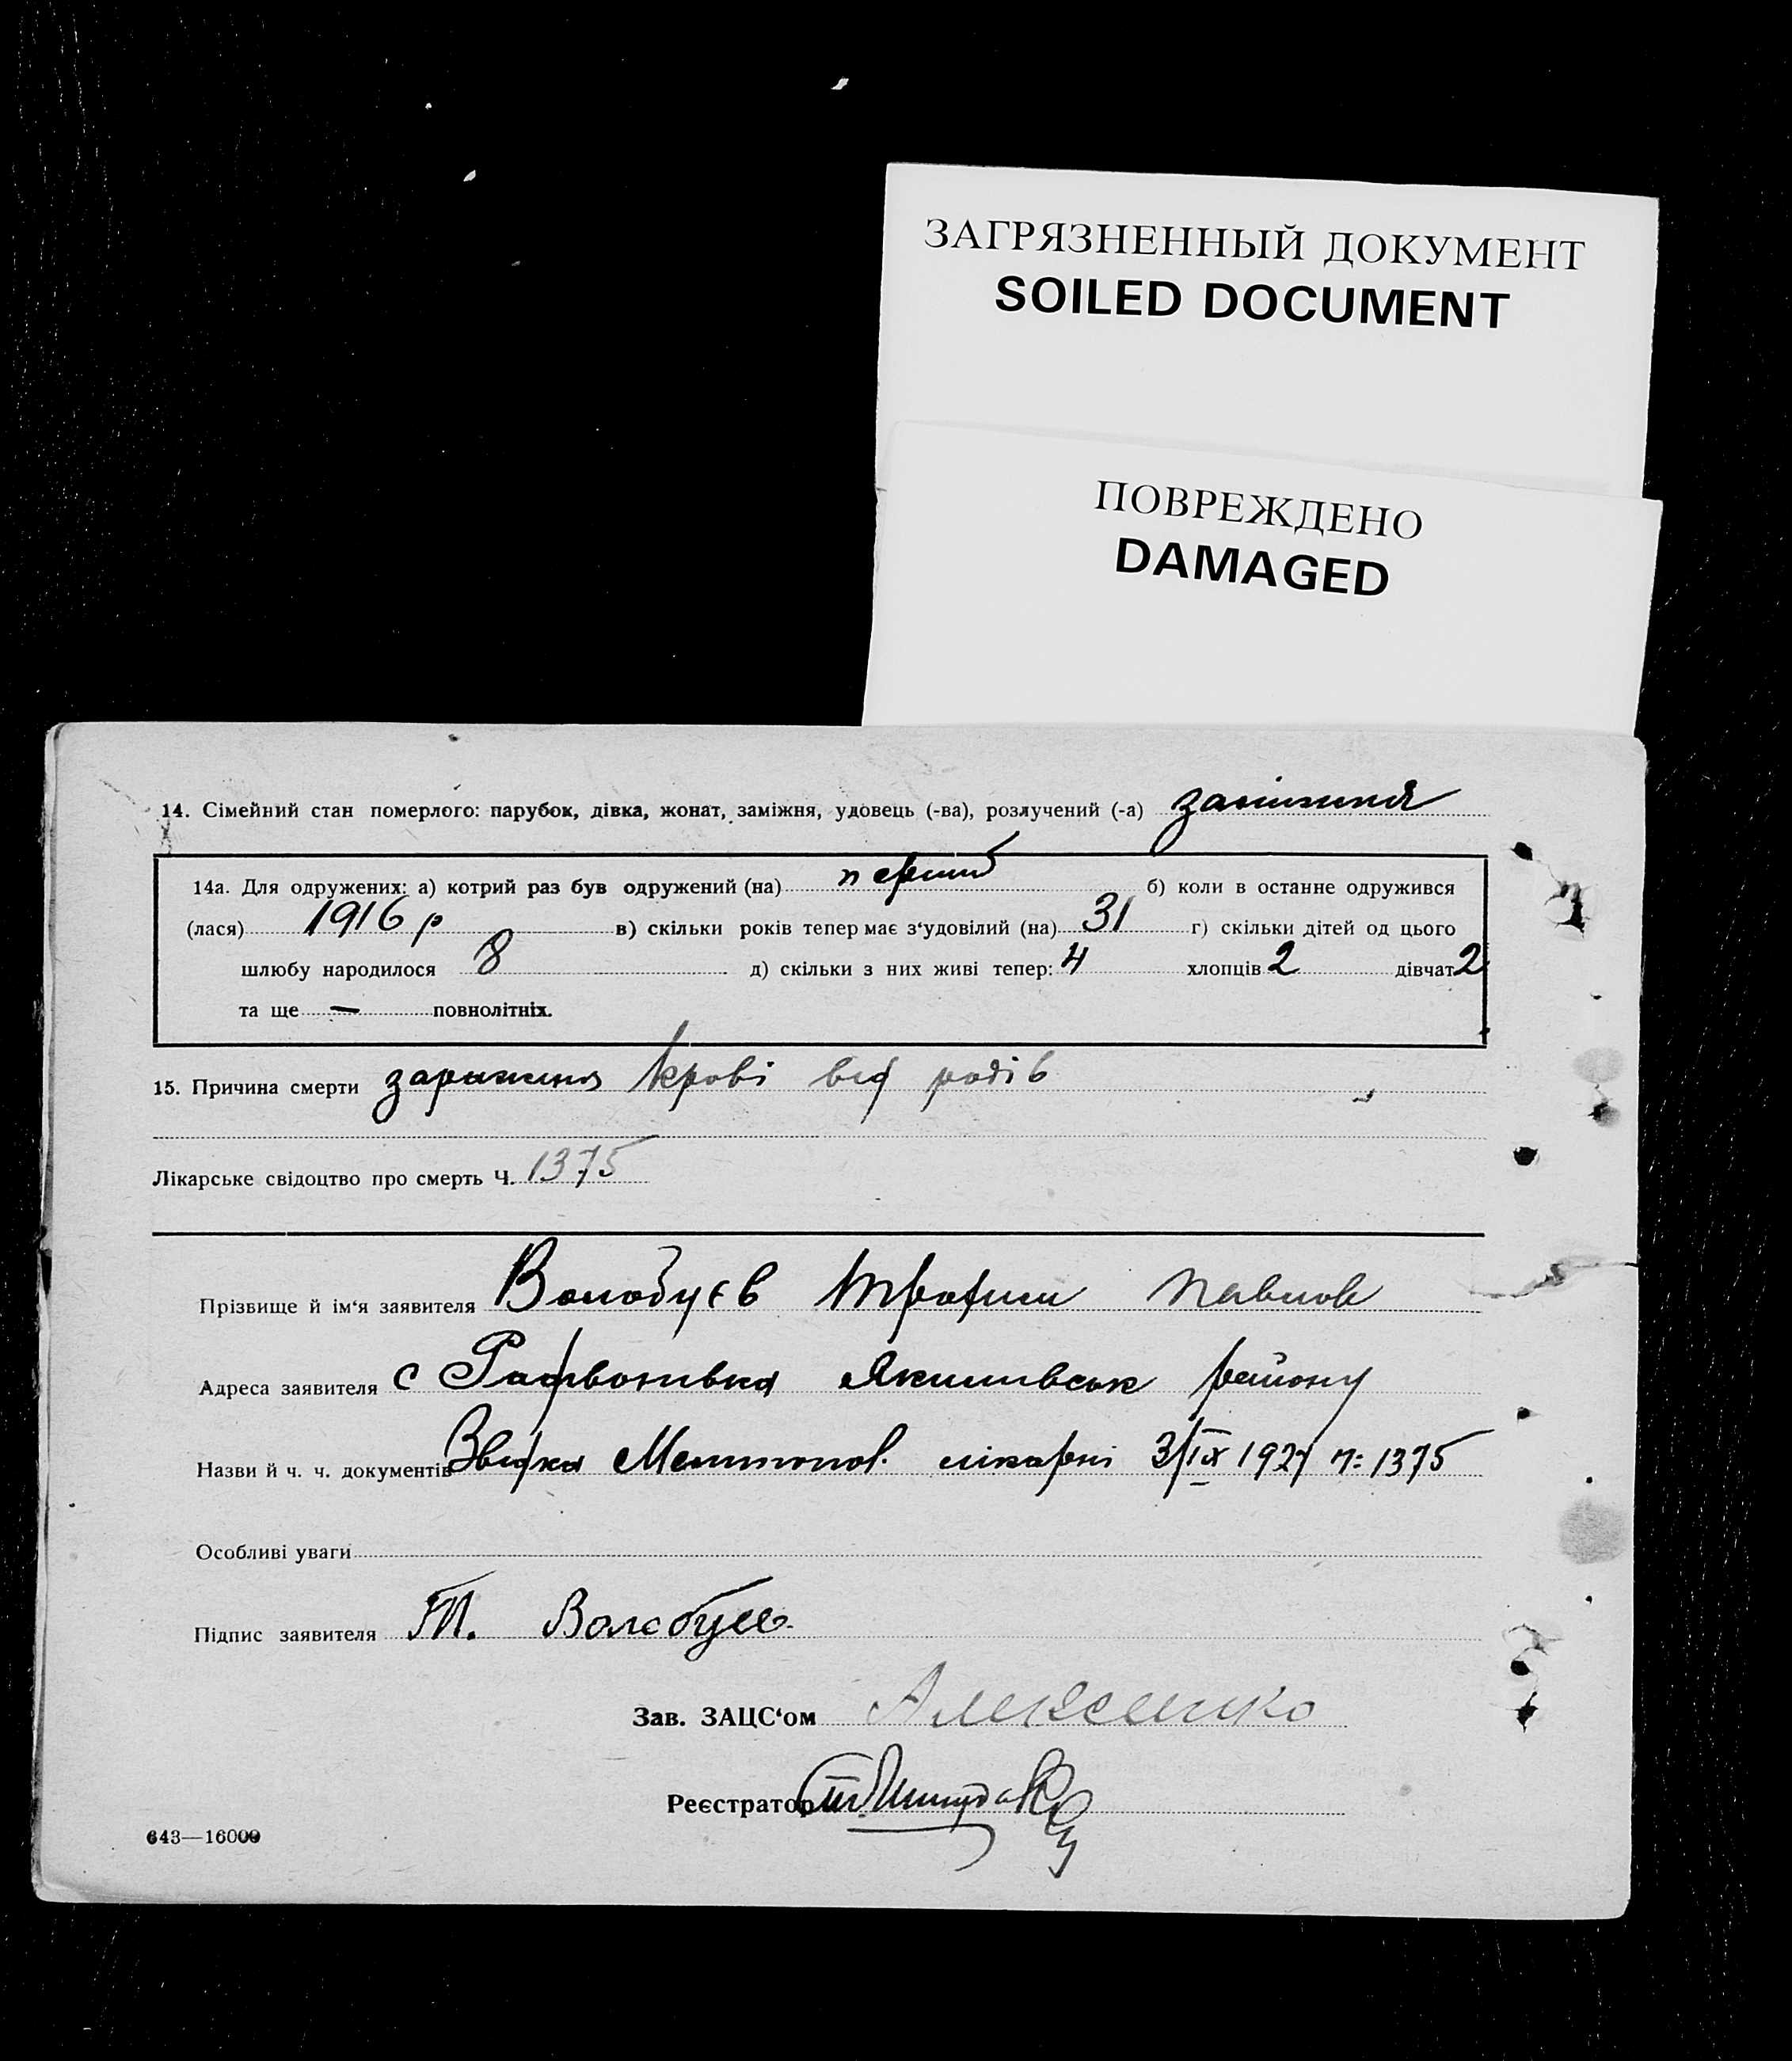 ЗАГРЯЗНЕННЫЙ ДОКУМЕНТ
SOILED DOCUMENT
ПОВРЕЖДЕНО
DAMAGED
14. Сімейний стан померлого: парубок, дівка, жонат, заміжня, удовець (-ва), розлучений (-а) заміжня
14а. Для одружених: а) котрий раз був одружений (на) перший б) коли в останнє одружився
(лася) 1916 р в) скільки років тепер має з‘удовілий (на) 31 г) скільки дітей од цього
шлюбу народилося 8 д) скільки з них живі тепер: 4 хлопців 2 дівчат 2
та ще — повнолітніх.
15. Причина смерти зараження крові від родів
Лікарське свідоцтво про смерть Ч. 1375
Прізвище й ім‘я заявителя Волобуєв Трофим Павлов
Адреса заявителя с Якимівськ району
Назви й ч. ч. документів Звідка Мелитопол. лікарні 3/IX 1927 n: 1375
Особливі уваги
Підпис заявителя Т. Волобуев
Зав. ЗАЦС‘ом Алексеенко
Реєстратор
643—16000